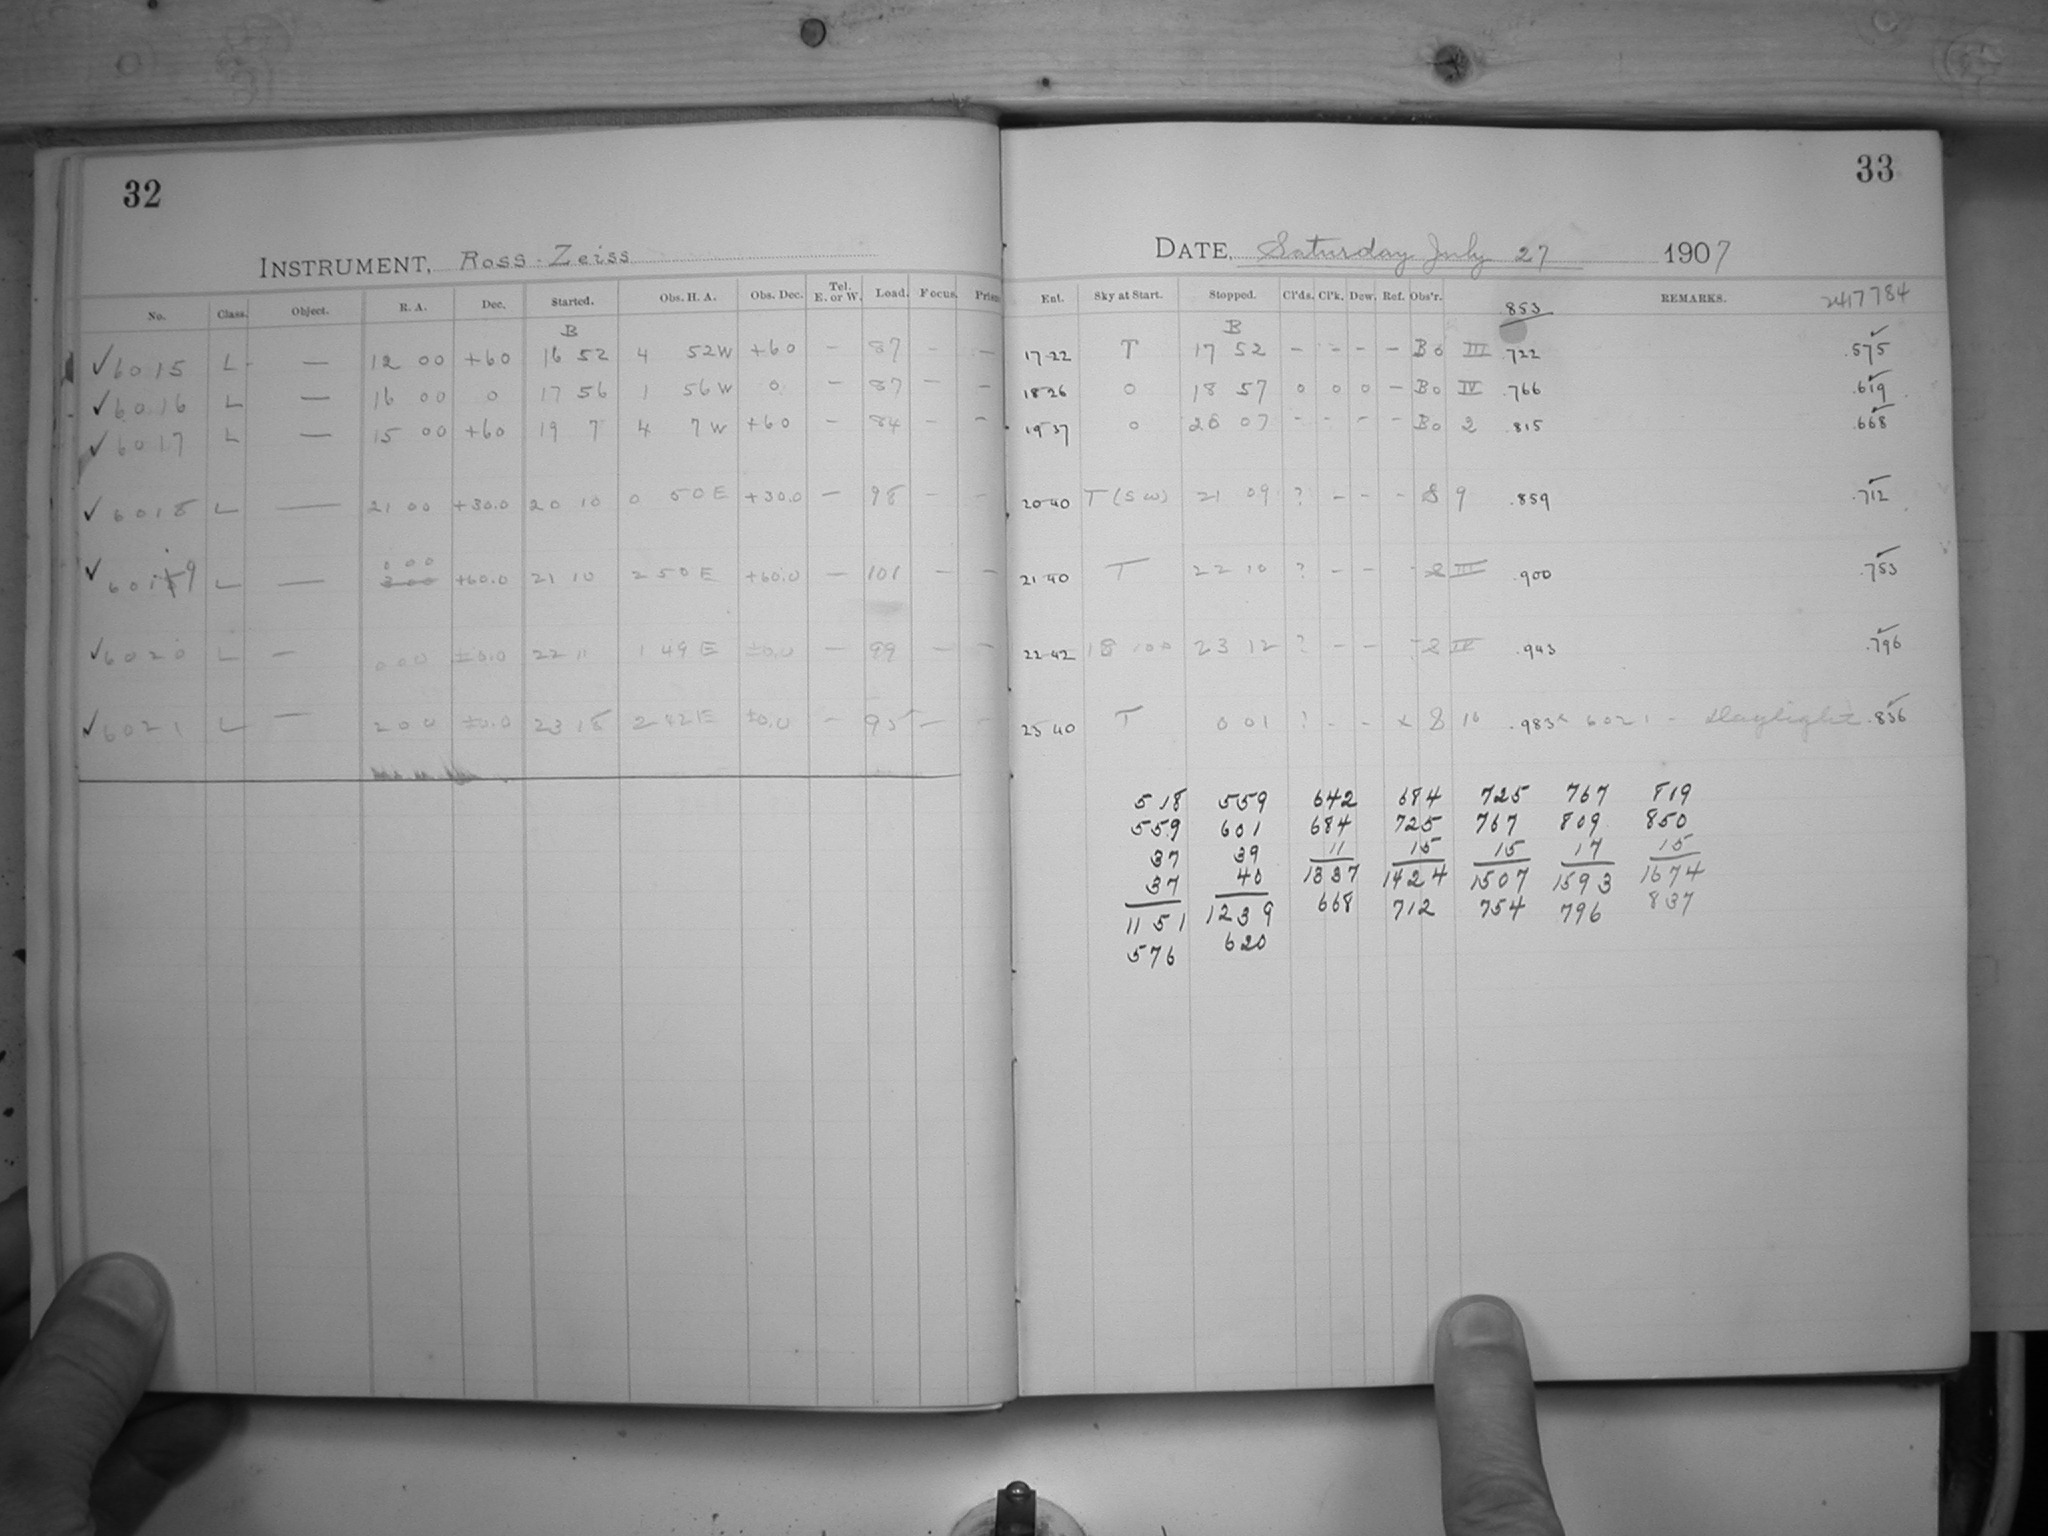 32
INSTRUMENT, Ross-Zeiss
No. Class. Object. R. A. Dec. Started. Obs. H. A. Obs. Dec. Tel. E. or W. Load. Focus. Prism
B
✓ 6015 L — 12 00 +60 16 52 4 52W +60 — 87 — —
✓ 6016 L — 16 00 0 17 56 1 56W 0 — 87 — —
✓ 6017 L — 15 00 +60 19 7 4 7W +60 — 84 — —
✓ 6018 L — 21 00 +30.0 20 10 0 50E +30.0 — 98 — —
0 00
✓ 6019 L — 3 00 +60.0 21 10 2 50E +60.0 — 101 — —
✓ 6020 L — 0 00 ±0.0 22 11 1 49E ±0.0 — 99 — —
✓ 6021 L — 2 00 ±0.0 23 18 2 42E ±0.0 — 95 — —
33
DATE, Saturday July 27 1907
Ent. Sky at Start. Stopped. Cl'ds. Cl'k. Dew. Ref. Obs'r. .853 REMARKS. 2417784
B
17-22 T 17 52 - - - - Bo III .722 .575
18-26 0 18 57 0 0 0 - Bo IV .766 .619
19-37 0 20 07 - - - - Bo 2 .815 .668
20-40 T (SW) 21 09 ? - - - S 9 .859 .712
21-40 T 22 10 ? - - - S III .900 .753
22-42 18 100 23 12 ? - - - S IV .943 .796
23-40 T 0 01 ? - - x S 10 .983 x 6021 - Daylight .836
518 559 642 684 725 767 819
559 601 684 725 767 809 850
37 39 11 15 15 17 15
37 40 1337 1424 1507 1593 1674
1151 1239 668 712 754 796 837
576 620